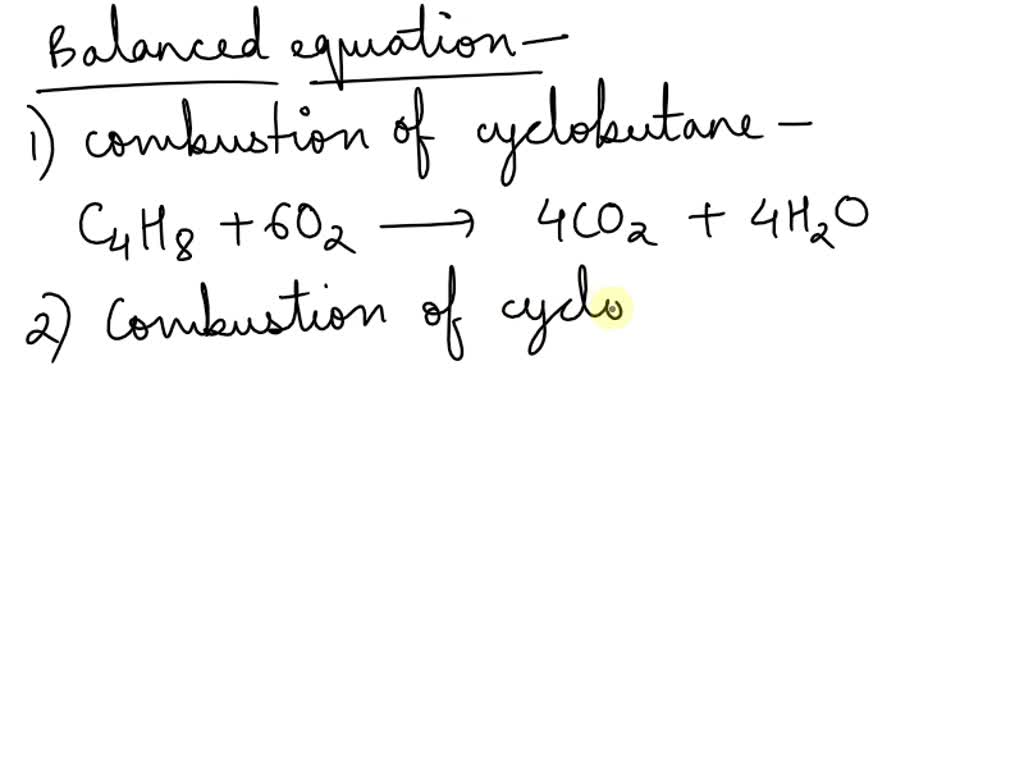 Balanced equation-
1) combustion of cyclobutane-
C₄H₈ + 6O₂ ⟶ 4CO₂ + 4H₂O
2) Combustion of cyclo